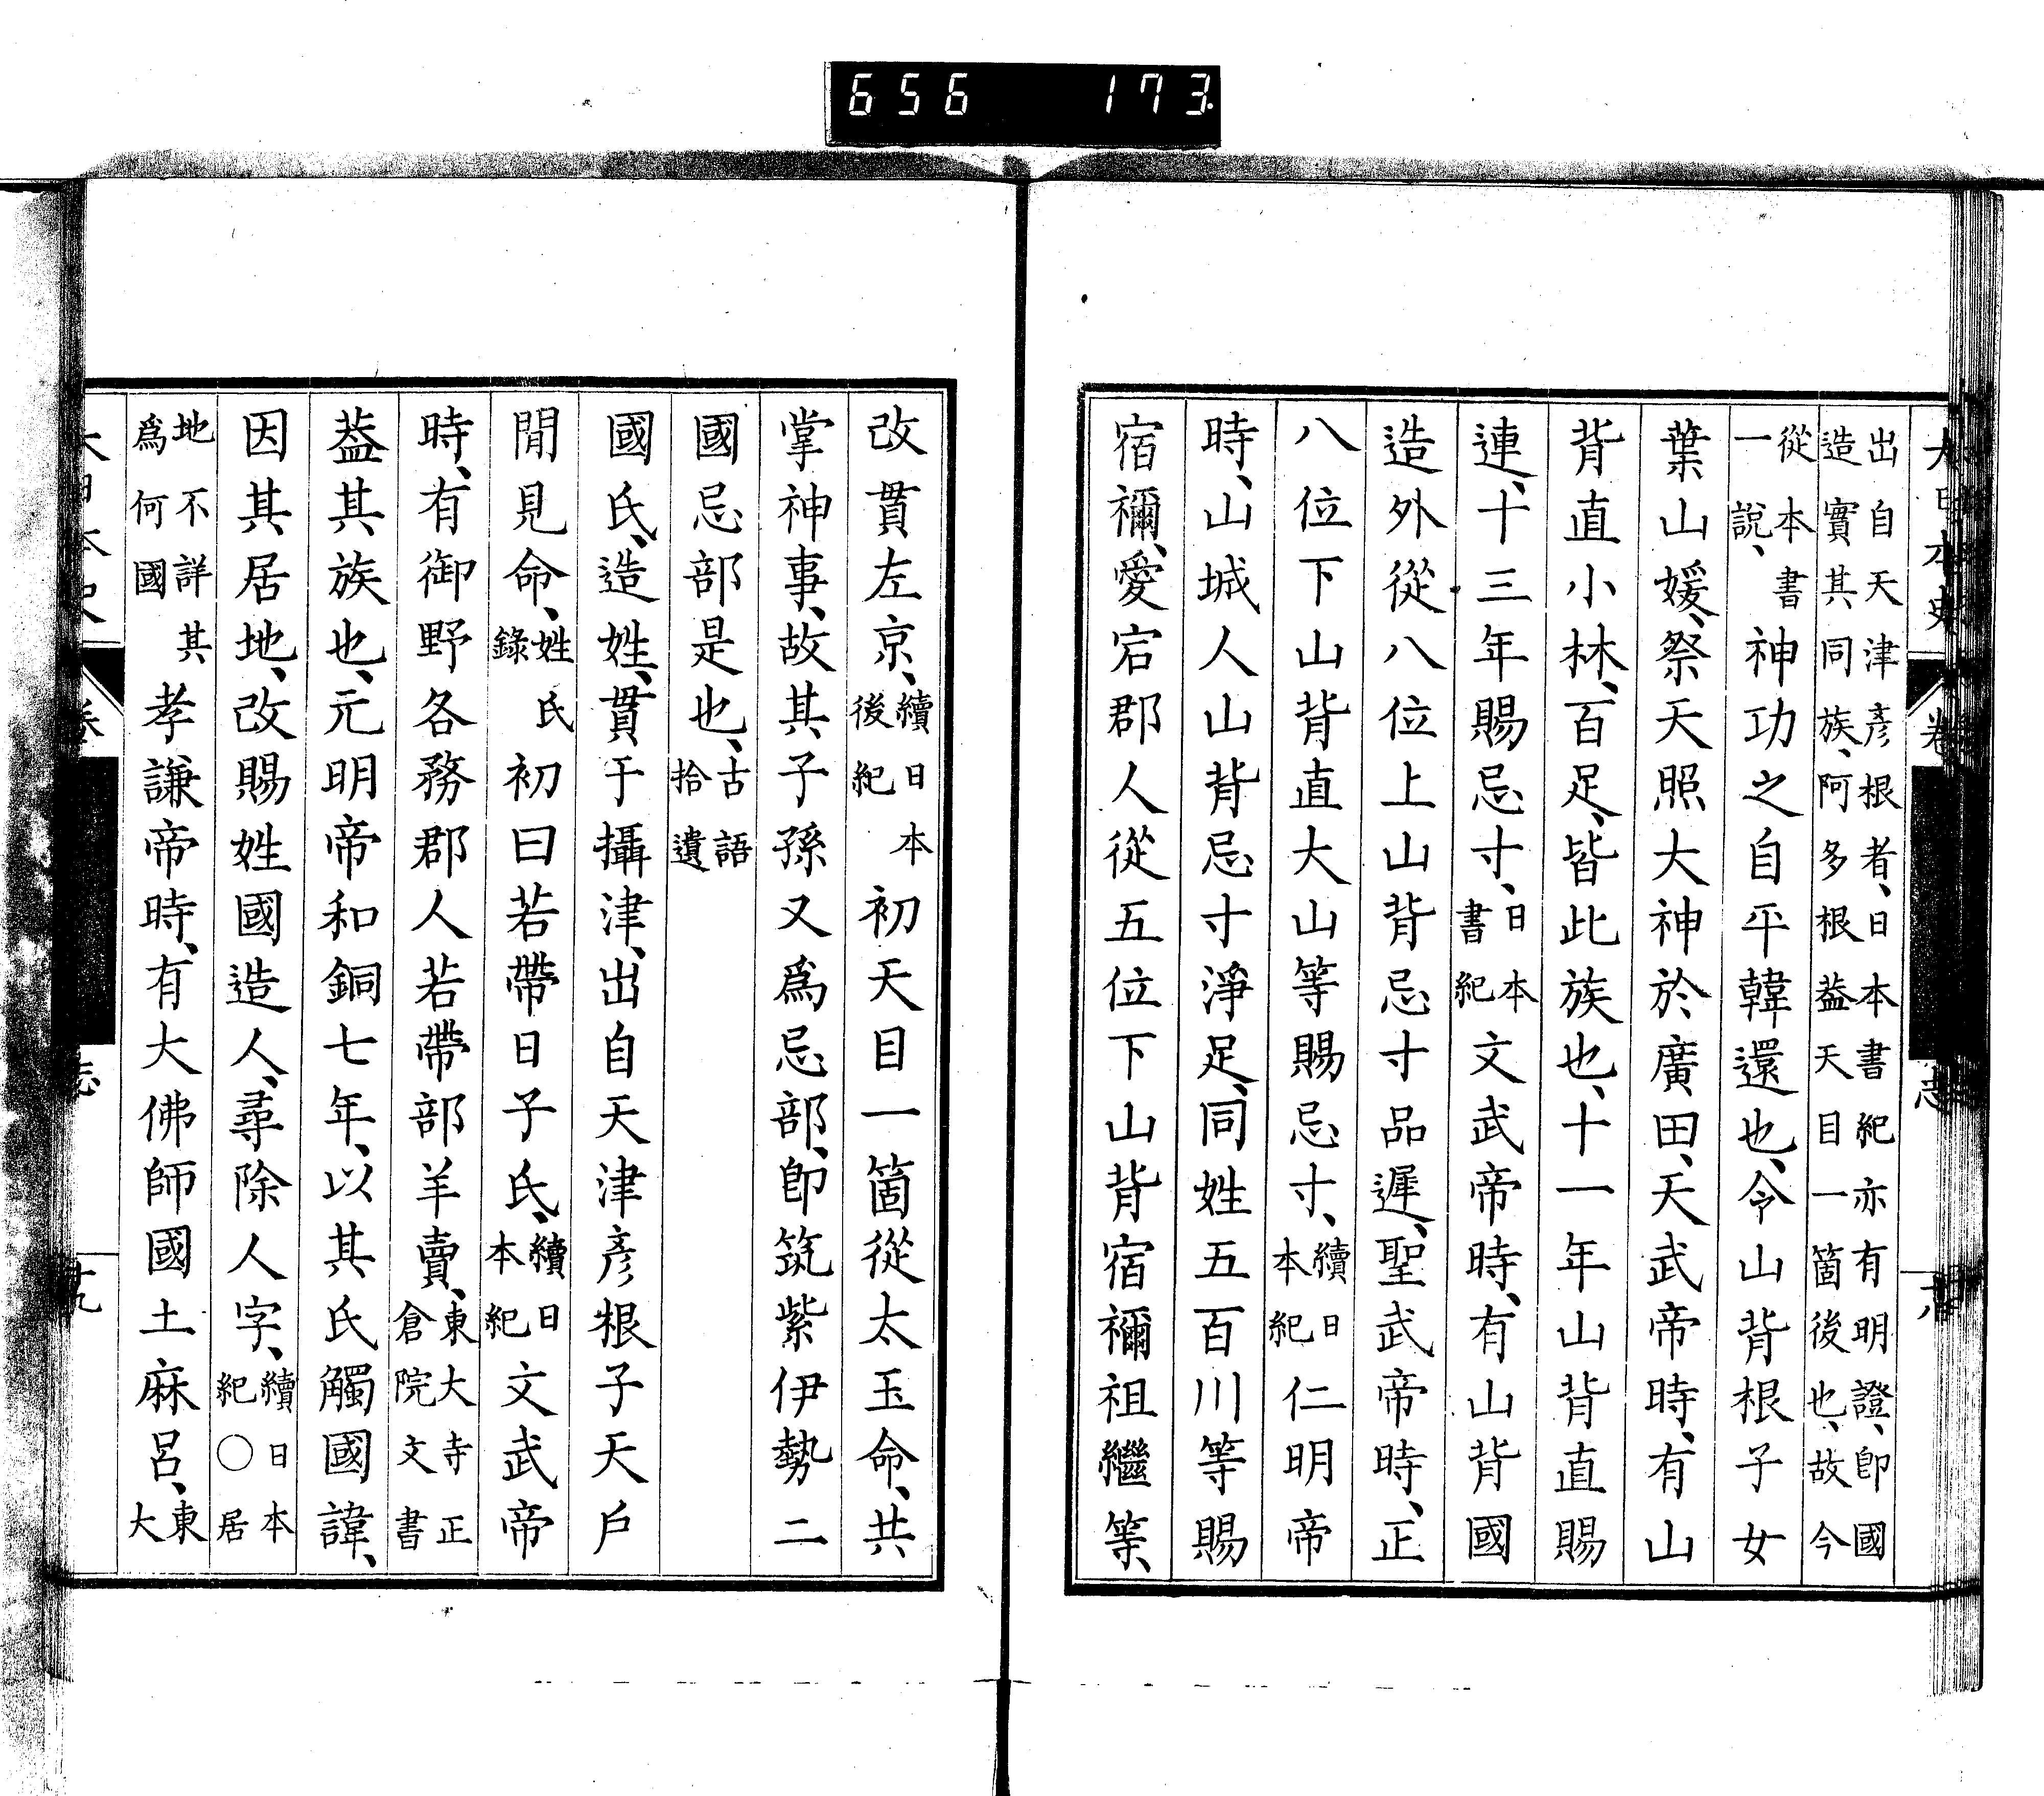 656 173
出自天津彥根者、日本書紀亦有明證、卽國
造實其同族、阿多根蓋天目一箇後也、故今
從本書
一說、
神功之自平韓還也、令山背根子女
葉山媛、祭天照大神於廣田、天武帝時、有山
背直小林、百足、皆此族也、十一年山背直賜
連、十三年賜忌寸、
日本
書紀
文武帝時、有山背國
造外從八位上山背忌寸品遲、聖武帝時、正
八位下山背直大山等賜忌寸、
續日
本紀
仁明帝
時、山城人山背忌寸淨足、同姓五百川等賜
宿禰、愛宕郡人從五位下山背宿禰祖繼等、
改貫左京、
續日本
後紀
初天目一箇從太玉命、共
掌神事、故其子孫又爲忌部、卽筑紫伊勢二
國忌部是也、
古語
拾遺
國氏、造姓、貫于攝津、出自天津彥根子天戶
閒見命、
姓氏
錄
初曰若帶日子氏、
續日
本紀
文武帝
時、有御野各務郡人若帶部羊賣、
東大寺正
倉院文書
蓋其族也、元明帝和銅七年、以其氏觸國諱、
因其居地、改賜姓國造人、尋除人字、
續日本
紀〇居
地不詳其
爲何國
孝謙帝時、有大佛師國土麻呂、
東
大